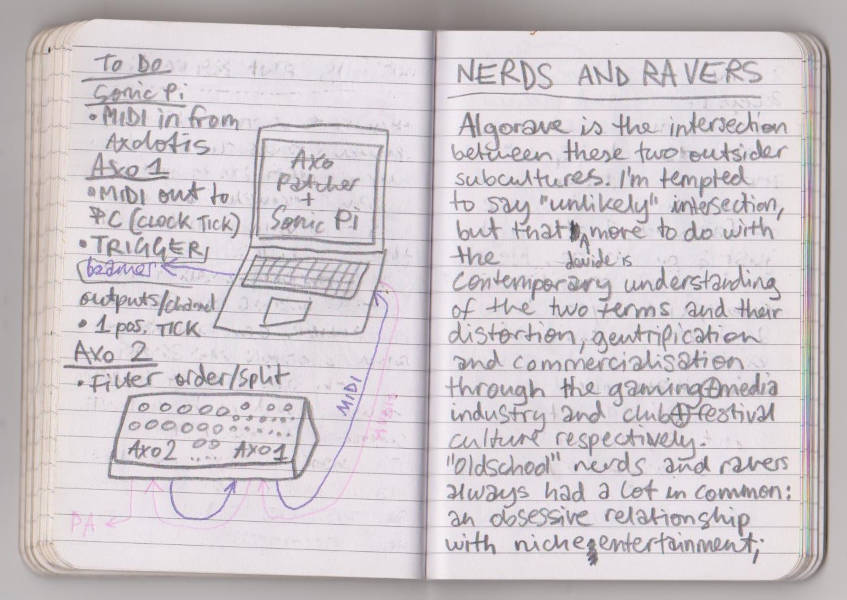 To Do
Sonic Pi
• MIDI in from
Axolotis
Axo 1
• MIDI out to
PC (CLOCK TICK)
• TRIGGER
beamer
outputs/channel
• 1 pos. TICK
Axo 2
• Filter order/split
Axo
Patcher
+
Sonic Pi
MIDI
Axo 2 Axo 1
PA
NERDS AND RAVERS
Algorave is the intersection
between these two outsider
subcultures. I'm tempted
to say "unlikely" intersection,
but that more to do with
the devide is
contemporary understanding
of the two terms and their
distortion, gentrification
and commercialisation
through the gaming+media
industry and club+festival
culture respectively.
"Oldschool" nerds and ravers
always had a lot in common:
an obsessive relationship
with niche entertainment;